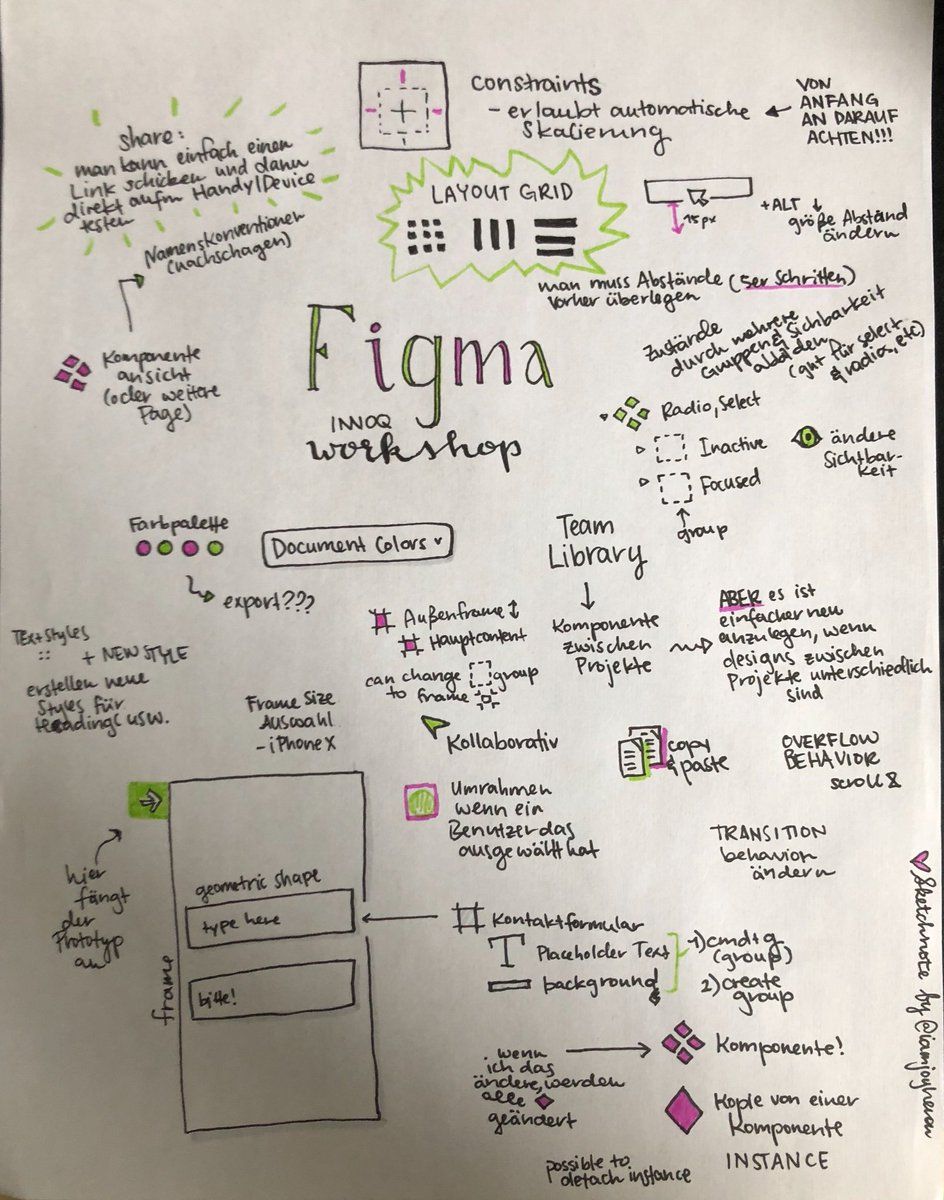 constraints
- erlaubt automatische
Skalierung
VON
ANFANG
AN DARAUF
ACHTEN!!!
share:
man kann einfach einen
Link schicken und dann
direkt aufm Handy/Device
testen
LAYOUT GRID
15px
+ALT
größe Abständ
ändern
man muss Abstände (5er Schritten)
vorher überlegen
Namenskonventionen
(nachschagen)
Komponente
ansicht
(oder weitere
Page)
Figma
INNOQ
workshop
Zustände
durch mehrere
Gruppen & Sichbarkeit
abbilden
(gut für select
& radios, etc)
Radio, Select
Inactive
Focused
group
ändere
Sichtbar-
keit
Farbpalette
Document Colors
export???
Team
Library
Komponente
zwischen
Projekte
ABER es ist
einfacher neu
anzulegen, wenn
designs zwischen
Projekte unterschiedlich
sind
TExt Styles
:: + NEW STYLE
erstellen neue
Styles für
Headings usw.
Außenframe
Hauptcontent
can change group
to frame
Frame Size
Auswahl
- iPhone X
Kollaborativ
copy
& paste
OVERFLOW
BEHAVIOR
scroll
Umrahmen
wenn ein
Benutzer das
ausgewählt hat
TRANSITION
behavior
ändern
hier
fängt
der
Prototyp
an
frame
geometric shape
type here
bitte!
Kontaktformular
T Placeholder Text
background
1) cmd+g
(group)
2) create
group
wenn
ich das
ändere, werden
alle
geändert
Komponente!
Kopie von einer
Komponente
INSTANCE
possible to
detach instance
Sketchnote by @iamjoyheron